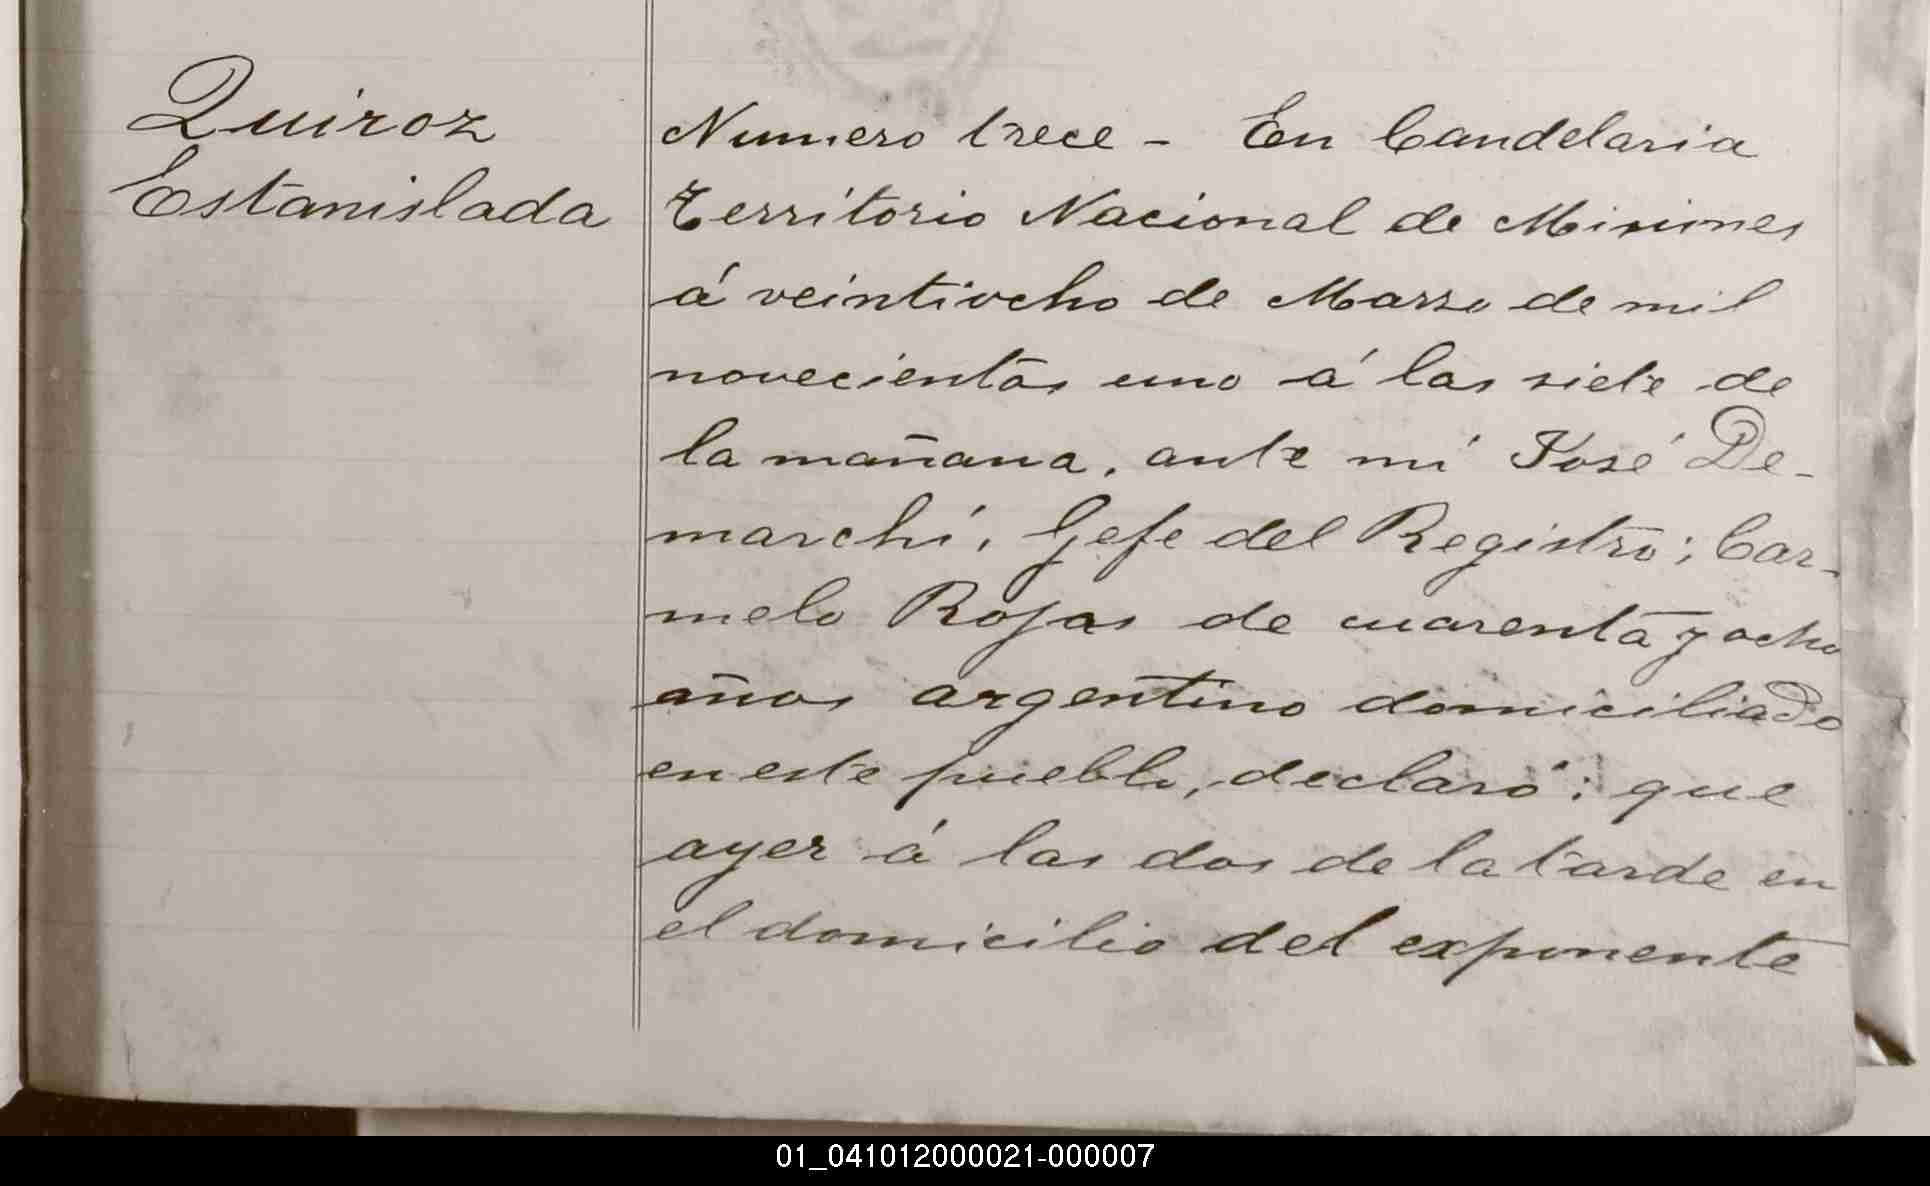 Quiroz
Estanislada
Numero trece - En Candelaria
Territorio Nacional de Misiones
á veintiocho de Marzo de mil
novecientos uno á las siete de
la mañana, ante mi José De-
marchi, Gefe del Registro; Car-
melo Rojas de cuarenta y ocho
años argentino domiciliado
en este pueblo, declaró: que
ayer á las dos de la tarde en
el domicilio del exponente
01_041012000021-000007